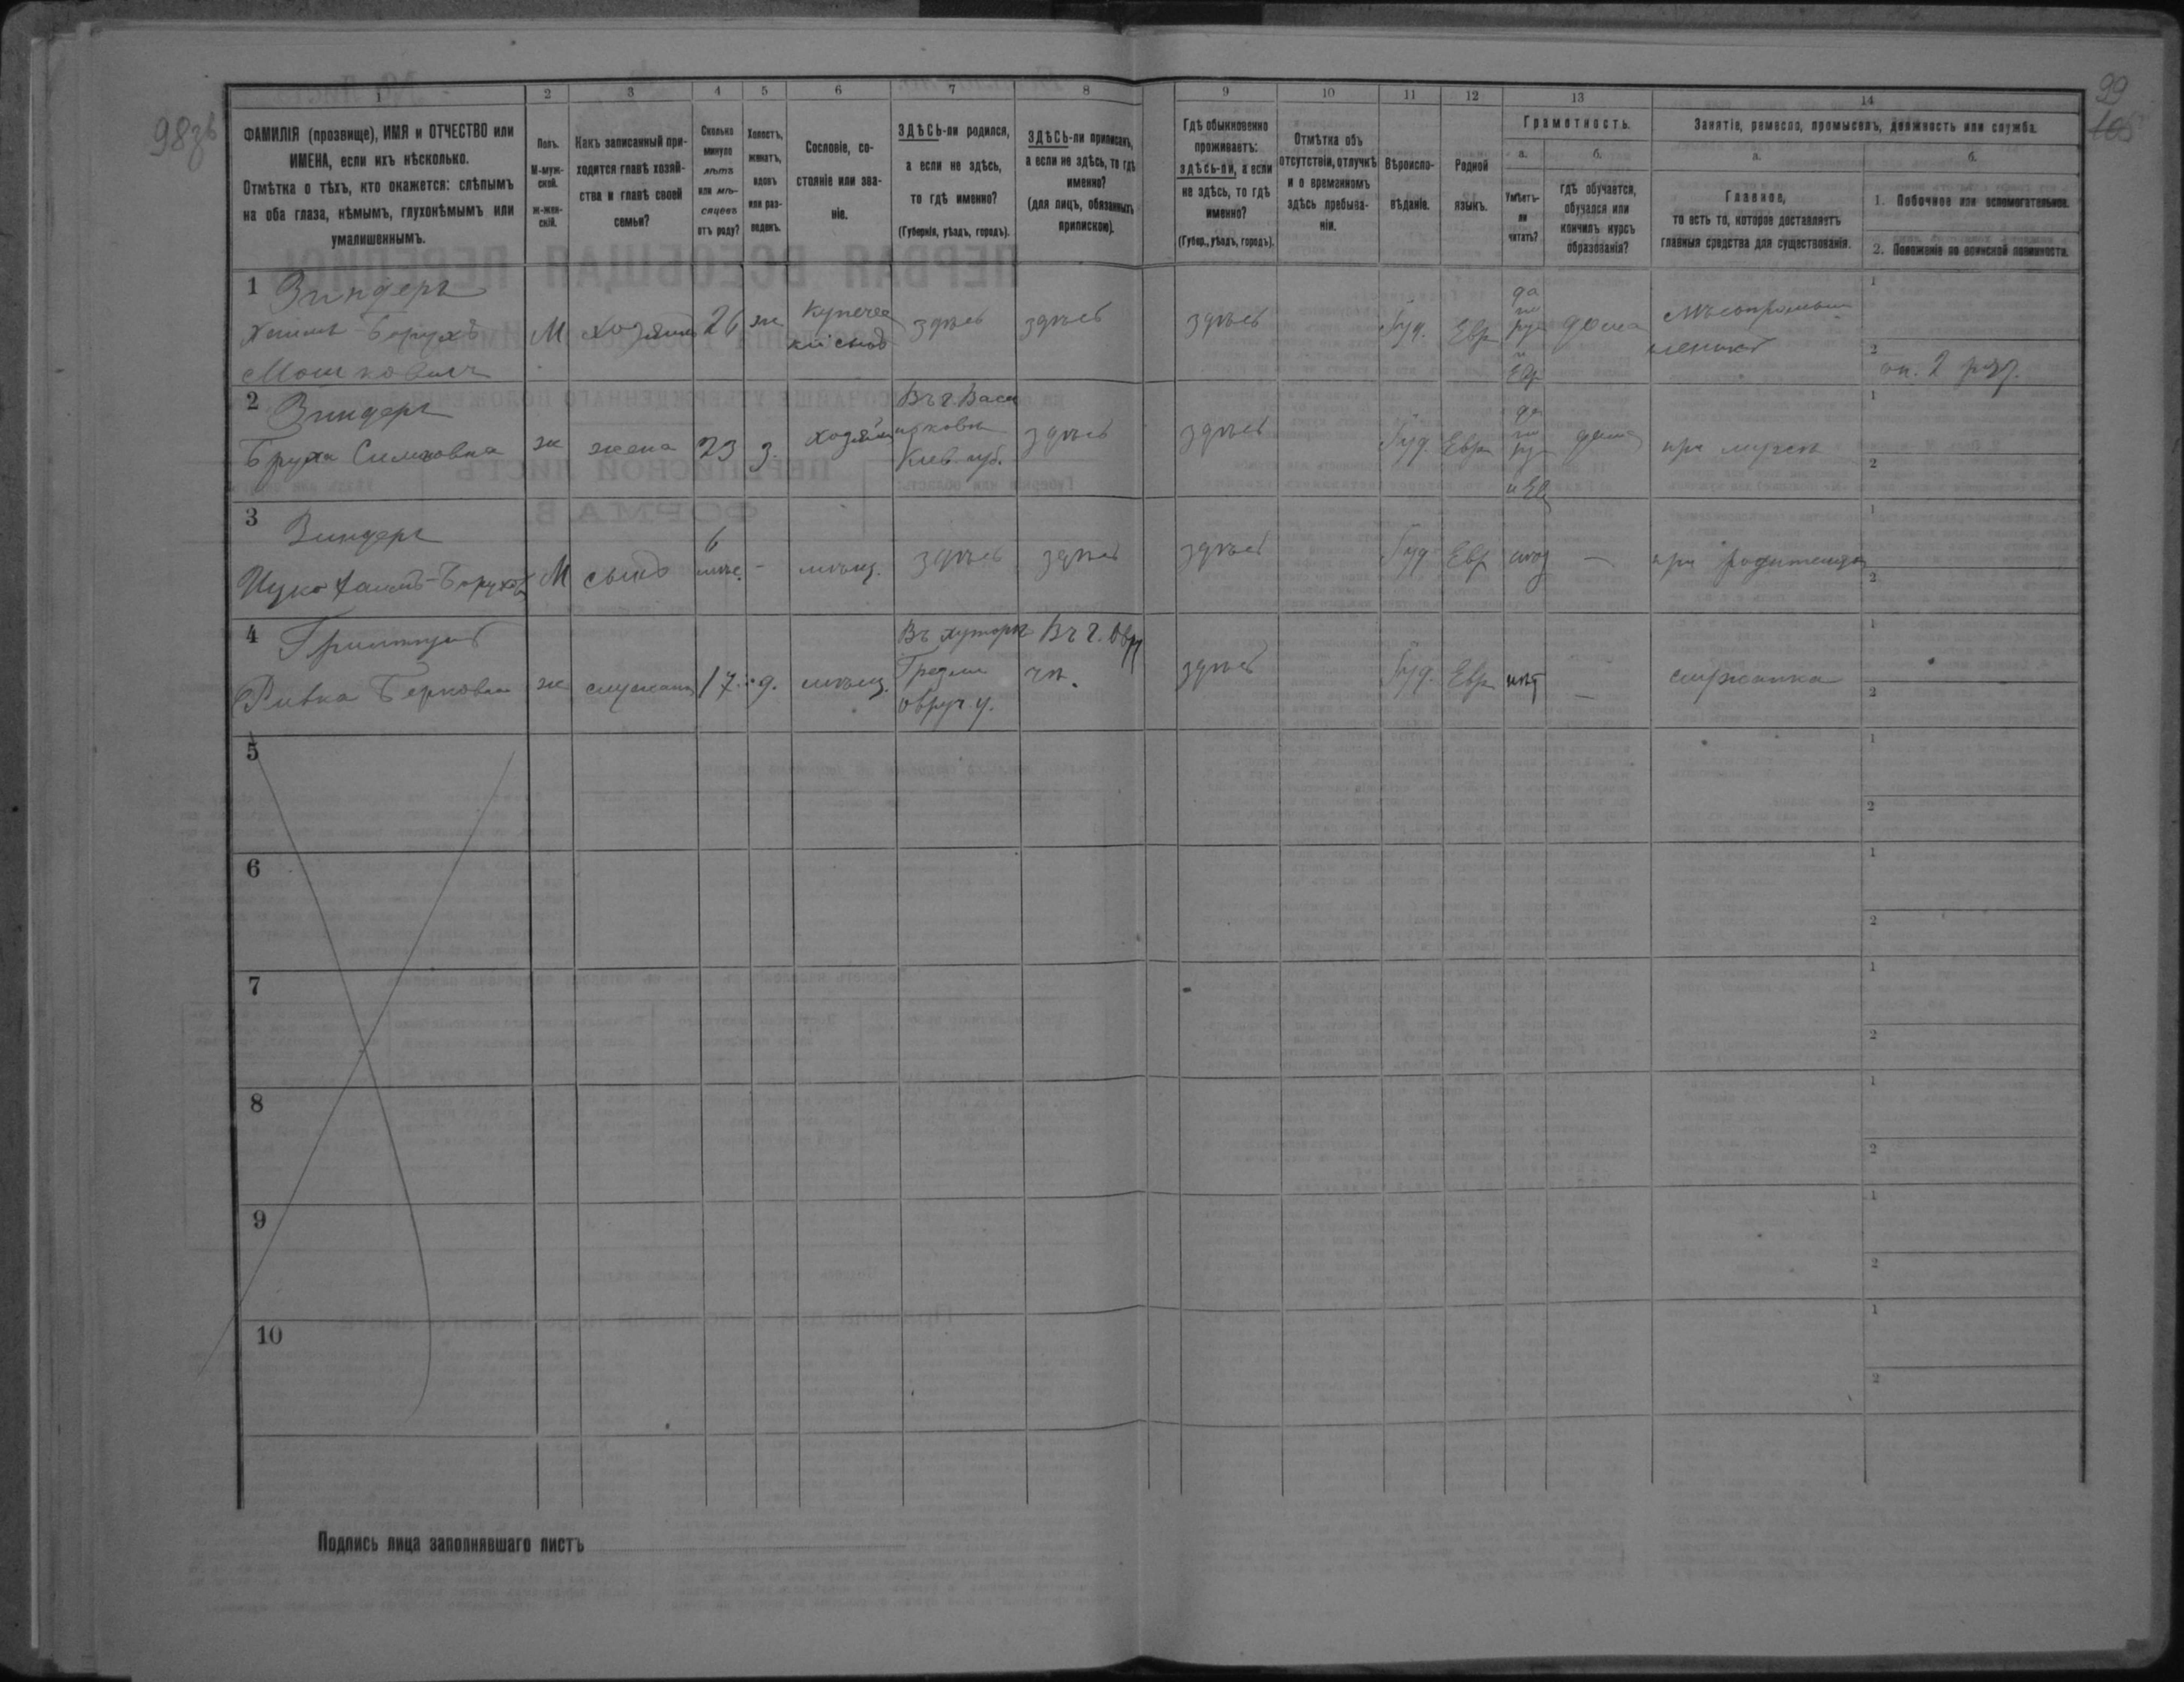 98зв
99
105
1
2
3
4
5
6
7
8
9
10
11
12
13
14
ФАМИЛІЯ (прозвище), ИМЯ и ОТЧЕСТВО или
ИМЕНА, если ихъ нѣсколько.
Отмѣтка о тѣхъ, кто окажется: слѣпымъ
на оба глаза, нѣмымъ, глухонѣмымъ или
умалишеннымъ.
Полъ.
М-муж-
ской.
ж-жен-
скій.
Какъ записанный при-
ходится главѣ хозяй-
ства и главѣ своей
семьи?
Сколько
минуло
лѣтъ
или мѣ-
сяцевъ
отъ роду?
Холостъ,
женатъ,
вдовъ
или раз-
веденъ.
Сословіе, со-
стояніе или зва-
ніе.
ЗДѢСЬ-ли родился,
а если не здѣсь,
то гдѣ именно?
(Губернія, уѣздъ, городъ).
ЗДѢСЬ-ли приписанъ,
а если не здѣсь, то гдѣ
именно?
(для лицъ, обязанныхъ
припискою).
Гдѣ обыкновенно
проживаетъ:
здѣсь-ли, а если
не здѣсь, то гдѣ
именно?
(Губер., уѣздъ, городъ).
Отмѣтка объ
отсутствіи, отлучкѣ
и о временномъ
здѣсь пребыва-
ніи.
Вѣроиспо-
вѣданіе.
Родной
языкъ.
Грамотность.
а.
Умѣетъ-
ли
читать?
б.
гдѣ обучается,
обучался или
кончилъ курсъ
образованія?
Занятіе, ремесло, промыселъ, должность или служба.
а.
Главное,
то есть то, которое доставляетъ
главныя средства для существованія.
б.
1. Побочное или вспомогательное.
2. Положеніе по воинской повинности.
1 Зиндеръ
Борухъ
Мошковичъ
М
хозяинъ
26
ж
купечес
кій сынъ
здѣсь
здѣсь
здѣсь
Іуд.
Евр
да
по
рус
и
Евр
дома
1
2
оп. 2 разр.
2 Зиндеръ
Бруха Симховна
ж
жена
23
з.
Въ г. Васи
льковѣ
Кіев. губ.
здѣсь
здѣсь
Іуд.
Евр
да
по
ру
и Ев
дома
при мужѣ
1
2
3 Зиндеръ
М
сынъ
6
мѣс.
-
мѣщ.
здѣсь
здѣсь
здѣсь
Іуд
Евр
нѣт
—
при родителяхъ
1
2
4
Ривка Берковна
ж
служанк
17
д.
мѣщ.
Въ хуторѣ
Овруч. у.
Въ г. Овру
чѣ.
здѣсь
Іуд.
Евр
нѣт
—
служанка
1
2
5
1
2
6
1
2
7
1
2
8
1
2
9
1
2
10
1
2
Подпись лица заполнявшаго листъ